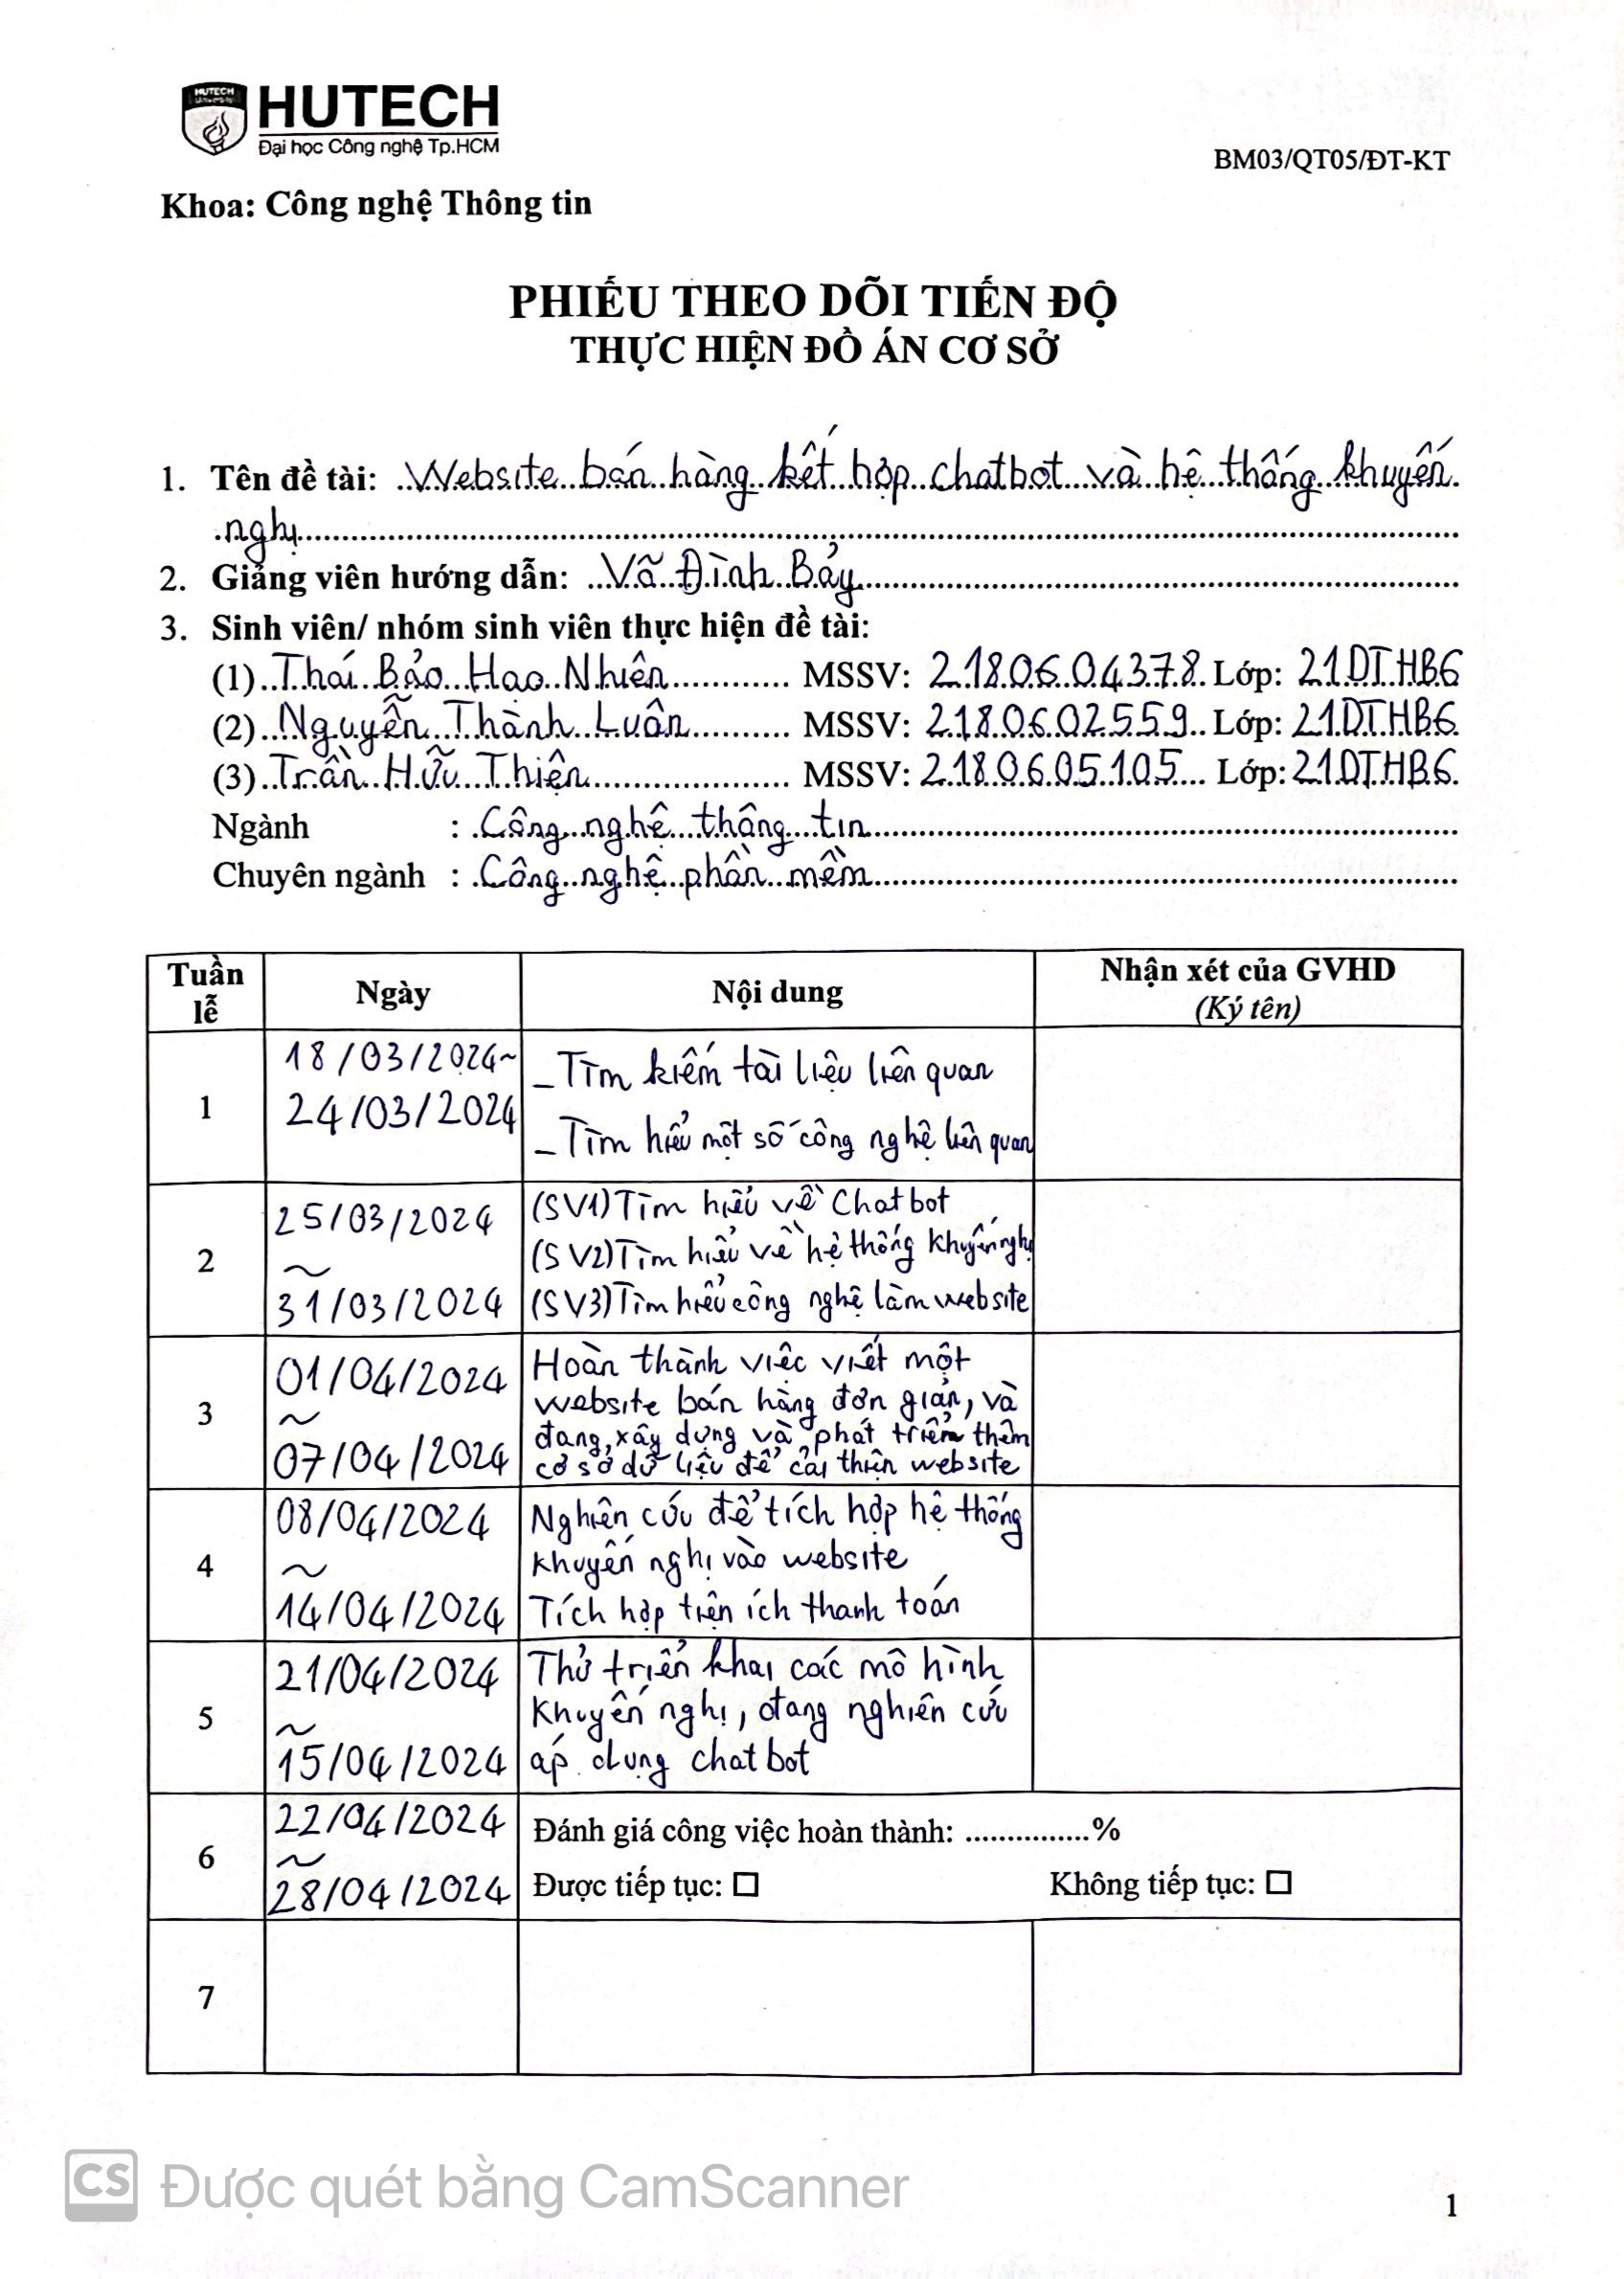 HUTECH
University
HUTECH
Đại học Công nghệ Tp.HCM
BM03/QT05/ĐT-KT
Khoa: Công nghệ Thông tin
PHIẾU THEO DÕI TIẾN ĐỘ
THỰC HIỆN ĐỒ ÁN CƠ SỞ
1. Tên đề tài: Website bán hàng kết hợp chatbot và hệ thống khuyến
nghị
2. Giảng viên hướng dẫn: Võ Đình Bảy
3. Sinh viên/ nhóm sinh viên thực hiện đề tài:
(1) Thái Bảo Hạo Nhiên MSSV: 2180604378 Lớp: 21DTHB6
(2) Nguyễn Thành Luân MSSV: 2180602559 Lớp: 21DTHB6
(3) Trần Hữu Thiện MSSV: 2180605105 Lớp: 21DTHB6
Ngành : Công nghệ thông tin
Chuyên ngành : Công nghệ phần mềm
Tuần
lễ
Ngày
Nội dung
Nhận xét của GVHD
(Ký tên)
1
18/03/2024~
24/03/2024
- Tìm kiếm tài liệu liên quan
- Tìm hiểu một số công nghệ liên quan
2
25/03/2024
~
31/03/2024
(SV1) Tìm hiểu về Chatbot
(SV2) Tìm hiểu về hệ thống khuyến nghị
(SV3) Tìm hiểu công nghệ làm website
3
01/04/2024
~
07/04/2024
Hoàn thành việc viết một
website bán hàng đơn giản, và
đang xây dựng và phát triển thêm
cơ sở dữ liệu để cải thiện website
4
08/04/2024
~
14/04/2024
Nghiên cứu để tích hợp hệ thống
khuyến nghị vào website
Tích hợp tiện ích thanh toán
5
21/04/2024
~
15/04/2024
Thử triển khai các mô hình
khuyến nghị, đang nghiên cứu
áp dụng chatbot
6
22/04/2024
~
28/04/2024
Đánh giá công việc hoàn thành: ...............%
Được tiếp tục: ☐ Không tiếp tục: ☐
7
CS Được quét bằng CamScanner
1